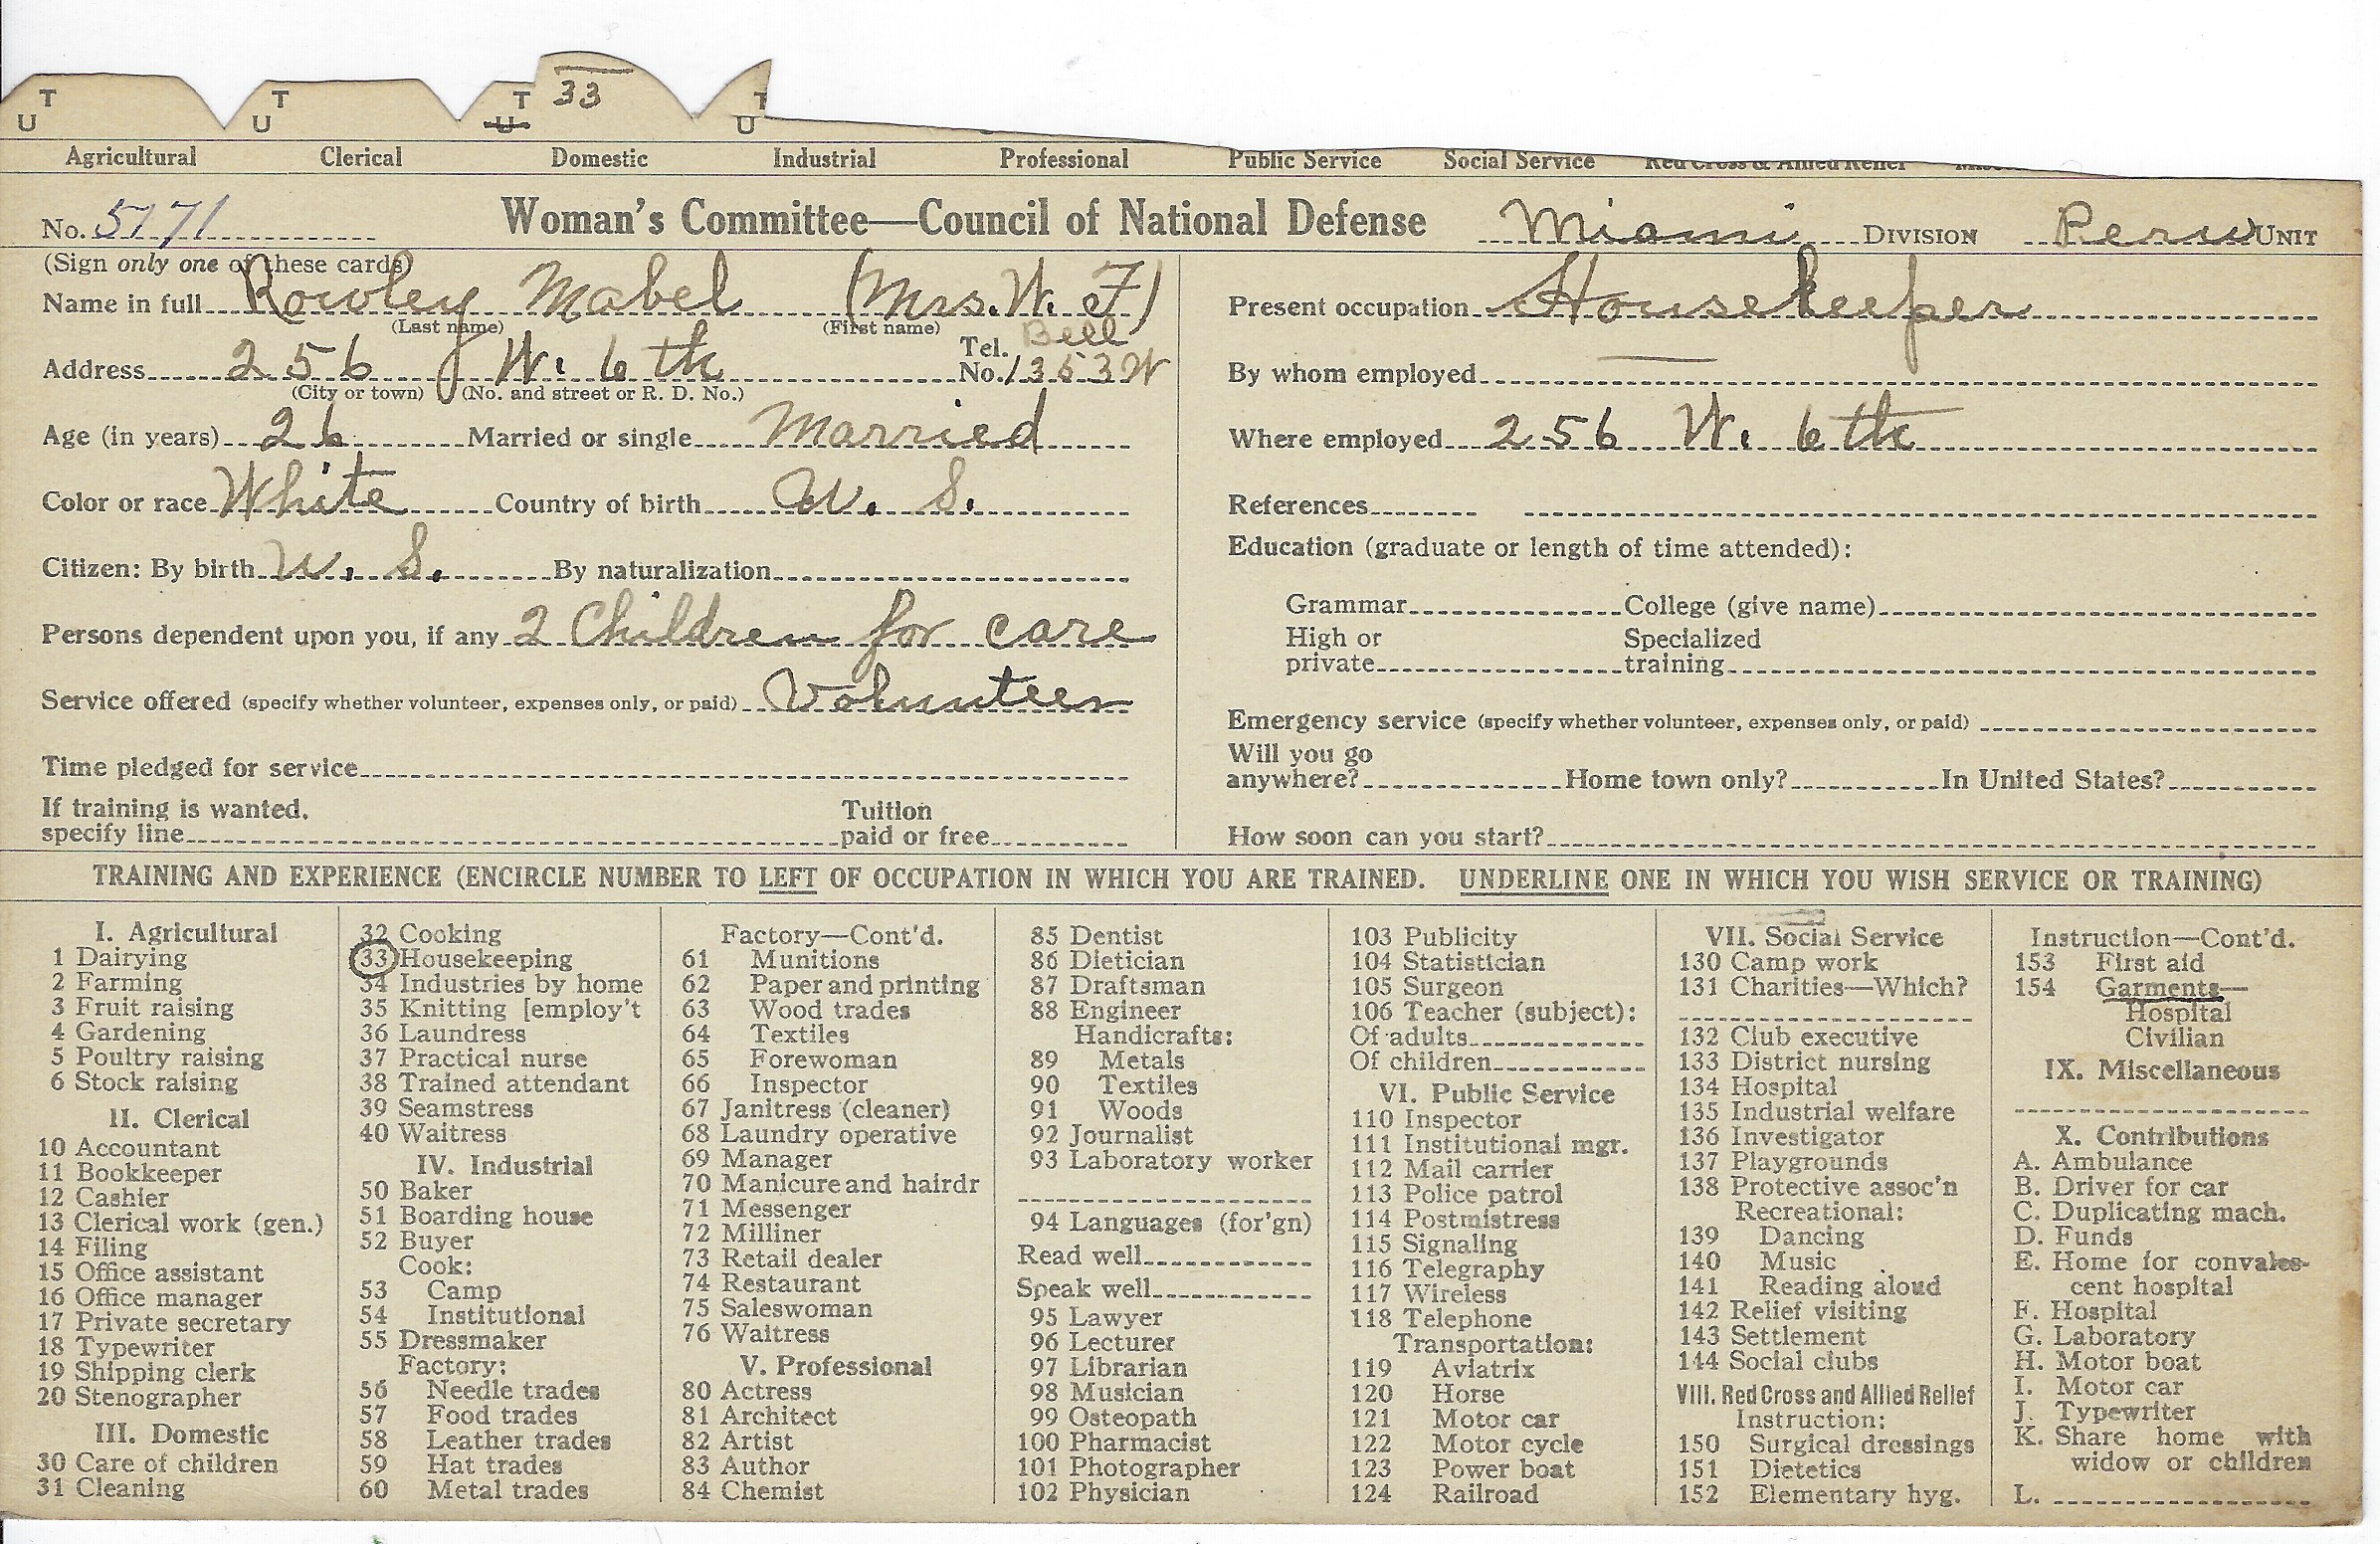 T T T 33 T
U U U U
Agricultural Clerical Domestic Industrial Professional Public Service Social Service Red Cross & Allied Relief
No. 5171 Woman's Committee—Council of National Defense Miami DIVISION Peru UNIT
(Sign only one of these cards)
Name in full Rowley Mabel (Mrs. W. F)
(Last name) (First name)
Address 256 W. 6th Tel. No. Bell 1353W
(City or town) (No. and street or R. D. No.)
Age (in years) 26 Married or single Married
Color or race White Country of birth U. S.
Citizen: By birth U. S. By naturalization
Persons dependent upon you, if any 2 Children for care
Service offered (specify whether volunteer, expenses only, or paid) Volunteer
Time pledged for service
If training is wanted, Tuition
specify line paid or free
Present occupation Housekeeper
By whom employed
Where employed 256 W. 6th
References
Education (graduate or length of time attended):
Grammar College (give name)
High or Specialized
private training
Emergency service (specify whether volunteer, expenses only, or paid)
Will you go
anywhere? Home town only? In United States?
How soon can you start?
TRAINING AND EXPERIENCE (ENCIRCLE NUMBER TO LEFT OF OCCUPATION IN WHICH YOU ARE TRAINED. UNDERLINE ONE IN WHICH YOU WISH SERVICE OR TRAINING)
I. Agricultural
1 Dairying
2 Farming
3 Fruit raising
4 Gardening
5 Poultry raising
6 Stock raising
II. Clerical
10 Accountant
11 Bookkeeper
12 Cashier
13 Clerical work (gen.)
14 Filing
15 Office assistant
16 Office manager
17 Private secretary
18 Typewriter
19 Shipping clerk
20 Stenographer
III. Domestic
30 Care of children
31 Cleaning
32 Cooking
33 Housekeeping
34 Industries by home
35 Knitting [employ't
36 Laundress
37 Practical nurse
38 Trained attendant
39 Seamstress
40 Waitress
IV. Industrial
50 Baker
51 Boarding house
52 Buyer
Cook:
53 Camp
54 Institutional
55 Dressmaker
Factory:
56 Needle trades
57 Food trades
58 Leather trades
59 Hat trades
60 Metal trades
Factory—Cont'd.
61 Munitions
62 Paper and printing
63 Wood trades
64 Textiles
65 Forewoman
66 Inspector
67 Janitress (cleaner)
68 Laundry operative
69 Manager
70 Manicure and hairdr
71 Messenger
72 Milliner
73 Retail dealer
74 Restaurant
75 Saleswoman
76 Waitress
V. Professional
80 Actress
81 Architect
82 Artist
83 Author
84 Chemist
85 Dentist
86 Dietician
87 Draftsman
88 Engineer
Handicrafts:
89 Metals
90 Textiles
91 Woods
92 Journalist
93 Laboratory worker
94 Languages (for'gn)
Read well
Speak well
95 Lawyer
96 Lecturer
97 Librarian
98 Musician
99 Osteopath
100 Pharmacist
101 Photographer
102 Physician
103 Publicity
104 Statistician
105 Surgeon
106 Teacher (subject):
Of adults
Of children
VI. Public Service
110 Inspector
111 Institutional mgr.
112 Mail carrier
113 Police patrol
114 Postmistress
115 Signaling
116 Telegraphy
117 Wireless
118 Telephone
Transportation:
119 Aviatrix
120 Horse
121 Motor car
122 Motor cycle
123 Power boat
124 Railroad
VII. Social Service
130 Camp work
131 Charities—Which?
132 Club executive
133 District nursing
134 Hospital
135 Industrial welfare
136 Investigator
137 Playgrounds
138 Protective assoc'n
Recreational:
139 Dancing
140 Music
141 Reading aloud
142 Relief visiting
143 Settlement
144 Social clubs
VIII. Red Cross and Allied Relief
Instruction:
150 Surgical dressings
151 Dietetics
152 Elementary hyg.
Instruction—Cont'd.
153 First aid
154 Garments—
Hospital
Civilian
IX. Miscellaneous
X. Contributions
A. Ambulance
B. Driver for car
C. Duplicating mach.
D. Funds
E. Home for convales-
cent hospital
F. Hospital
G. Laboratory
H. Motor boat
I. Motor car
J. Typewriter
K. Share home with
widow or children
L.